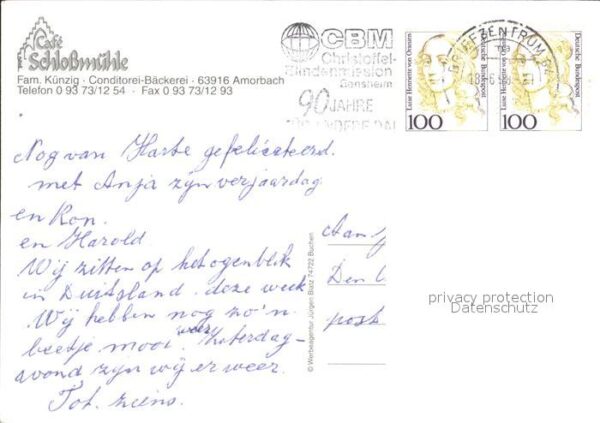 Café
Schloßmühle
Fam. Künzig · Conditorei-Bäckerei · 63916 Amorbach
Telefon 0 93 73/12 54 · Fax 0 93 73/12 93
CBM
Christoffel-
Blindenmission
Bensheim
90 JAHRE
BRIEFZENTRUM
Luise Henriette von Oranien
Deutsche Bundespost
100
Luise Henriette von Oranien
Deutsche Bundespost
100
Nog van Harte gefeliciteerd.
met Anja zijn verjaardag
en Ron.
en Harold.
Wij zitten op het ogenblik
in Duitsland deze week
Wij hebben nog zo'n
beetje mooi weer Zaterdag-
avond zijn wij er weer.
Tot ziens.
Aan
Den
post
© Werbeagentur Jürgen Balz 74722 Buchen
privacy protection
Datenschutz